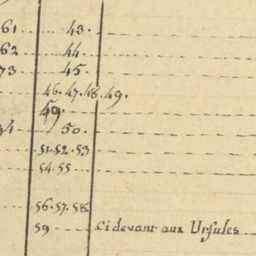 61 43.
62 44
73 45.
46.47.48.49.
49.
34 50.
51.52.53
54.55
56.57.58
59 Ci devant aux Ursules